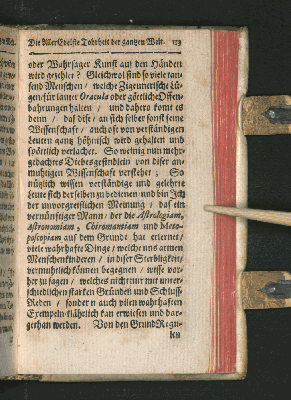 Die Aller Edelste Tohrheit der gantzen Welt. 113
oder Wahrsager Kunst auf den Händen
wird gezehlet? Gleichwol sind so viele tau-
send Menschen / welche Zigeunerische Lü-
gen / für lauter Oracula oder götliche Offen-
bahrungen halten / und dahero komt es
denn / daß dise / an sich selber sonst feine
Wissenschaft / auch oft von verständigen
Leuten ganz höhnisch wird gehalten und
spöttlich verlachet. So weinig nun mehr-
gedachtes Diebesgesindlein von diser an-
muhtigen Wissenschaft verstehet; So
nützlich wissen verständige und gelehrte
Leute sich derselben zu bedienen und bin Ich
der unvorgreiflichen Meinung / daß ein
vernünftiger Mann / der die Astrologiam,
Astronomiam, Chiromantiam und Meto-
poscopiam auf dem Grunde hat erlernet /
viele wahrhafte Dinge / welche uns armen
Menschenkinderen / in diser Sterbligkeit /
vermuhtlich können begegnen / wisse vor-
her zu sagen / welches nicht nur mit unter-
schiedlichen starken Gründen und Schluss-
Reden / sondern auch vilen wahrhaften
Exempeln klährlich kan erwiesen und dar-
gethan werden. Von den Grund Regu-
len